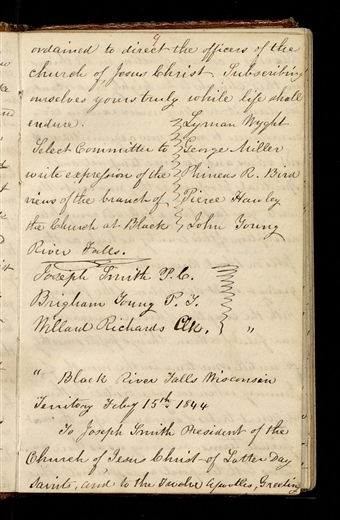 9
ordained to direct the officers of the
church of Jesus Christ. Subscribing
ourselves yours truly while life shall
endure. Lyman Wyght
Select Committee to George Miller
write expression of the Phineas R. Bird
views of the branch of Pierce Hawley
the Church at Black John Young
River Falls.
Joseph Smith P.C.
Brigham Young P. T.
Willard Richards Clk. "
" Black River Falls Wisconsin
Territory Feby 15th 1844
To Joseph Smith President of the
Church of Jesus Christ of Latter Day
Saints, and to the Twelve Apostles, Greeting